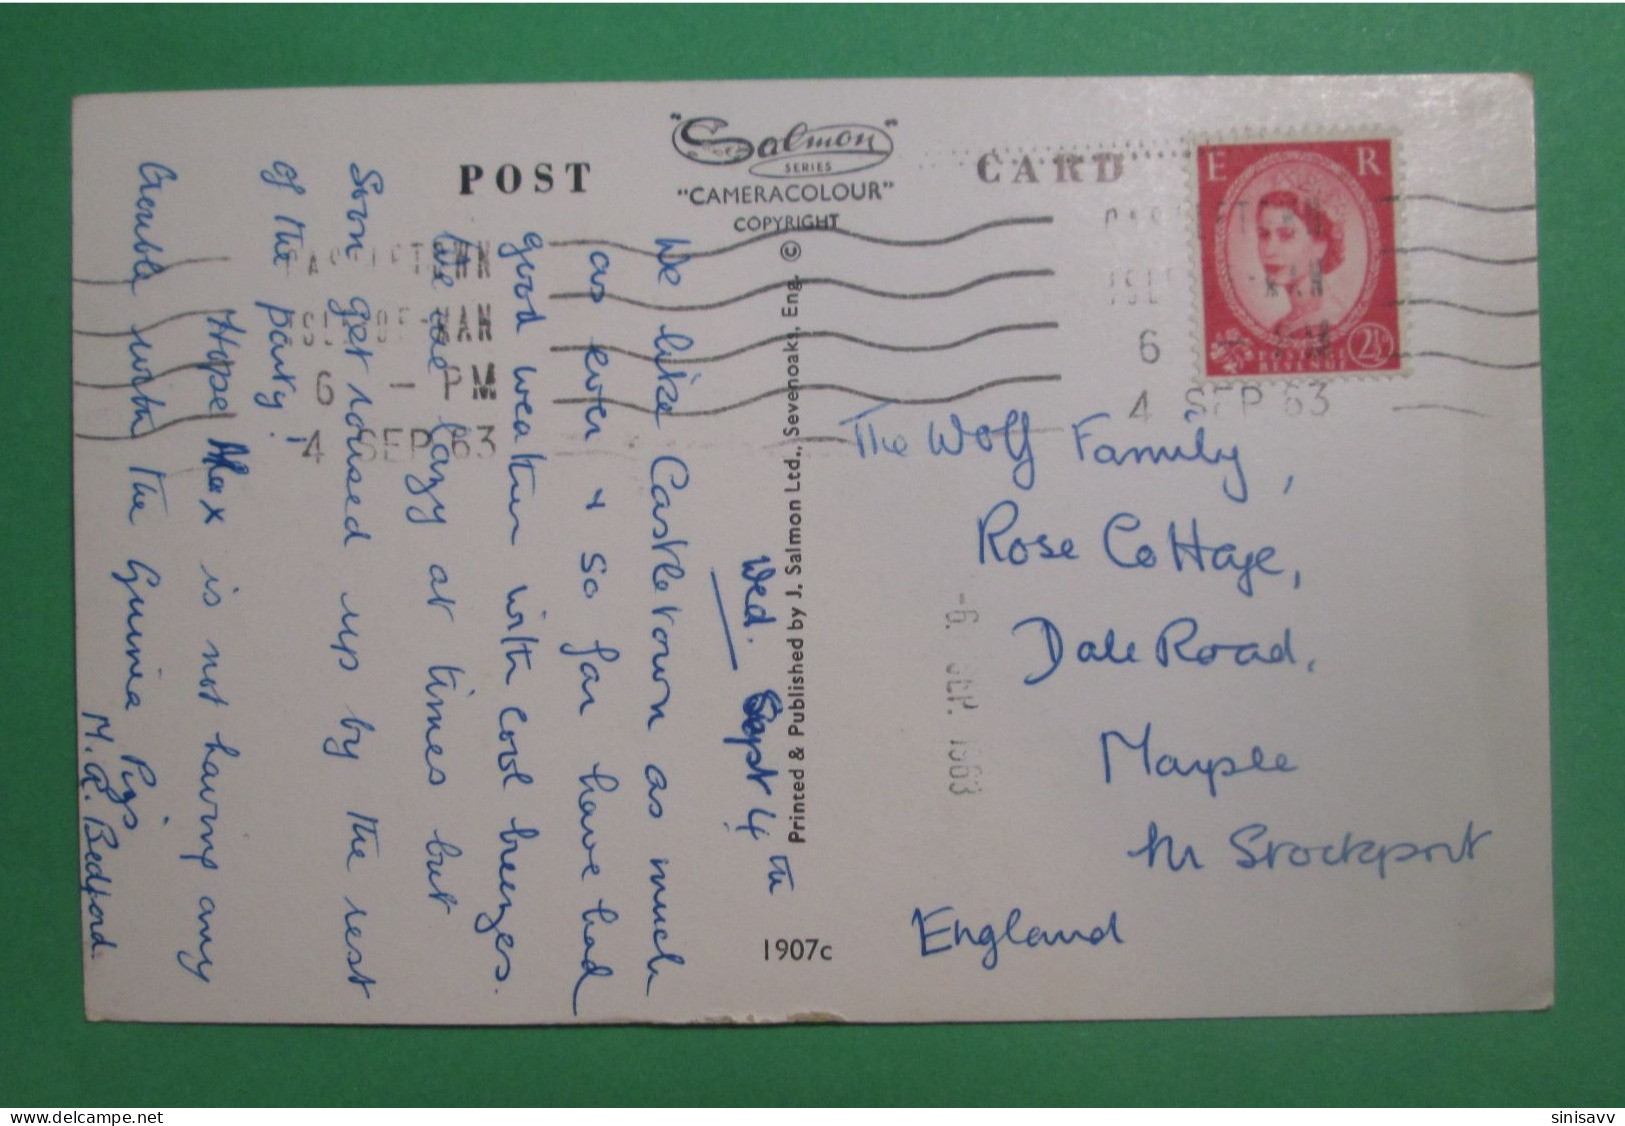 POST CARD
"Salmon"
SERIES
"CAMERACOLOUR"
COPYRIGHT ©
Printed & Published by J. Salmon Ltd., Sevenoaks, Eng.
1907c
E R
POSTAGE
REVENUE
2½D
CASTLETOWN
ISLE OF MAN
6 - PM
4 SEP 63
CASTLETOWN
ISLE OF MAN
6 - PM
4 SEP 63
-6. SEP. 1963
Wed. Sept 4th
We like Castletown as much
as ever & so far have had
good weather with cool breezes.
lazy at times but
Soon get roused up by the rest
of the party!
Hope Alex is not having any
trouble with the Guinia Pigs
M. A. Bedford.
The Wolff Family,
Rose Cottage,
Dale Road,
Marple
Nr Stockport
England
delcampe.net
sinisavv